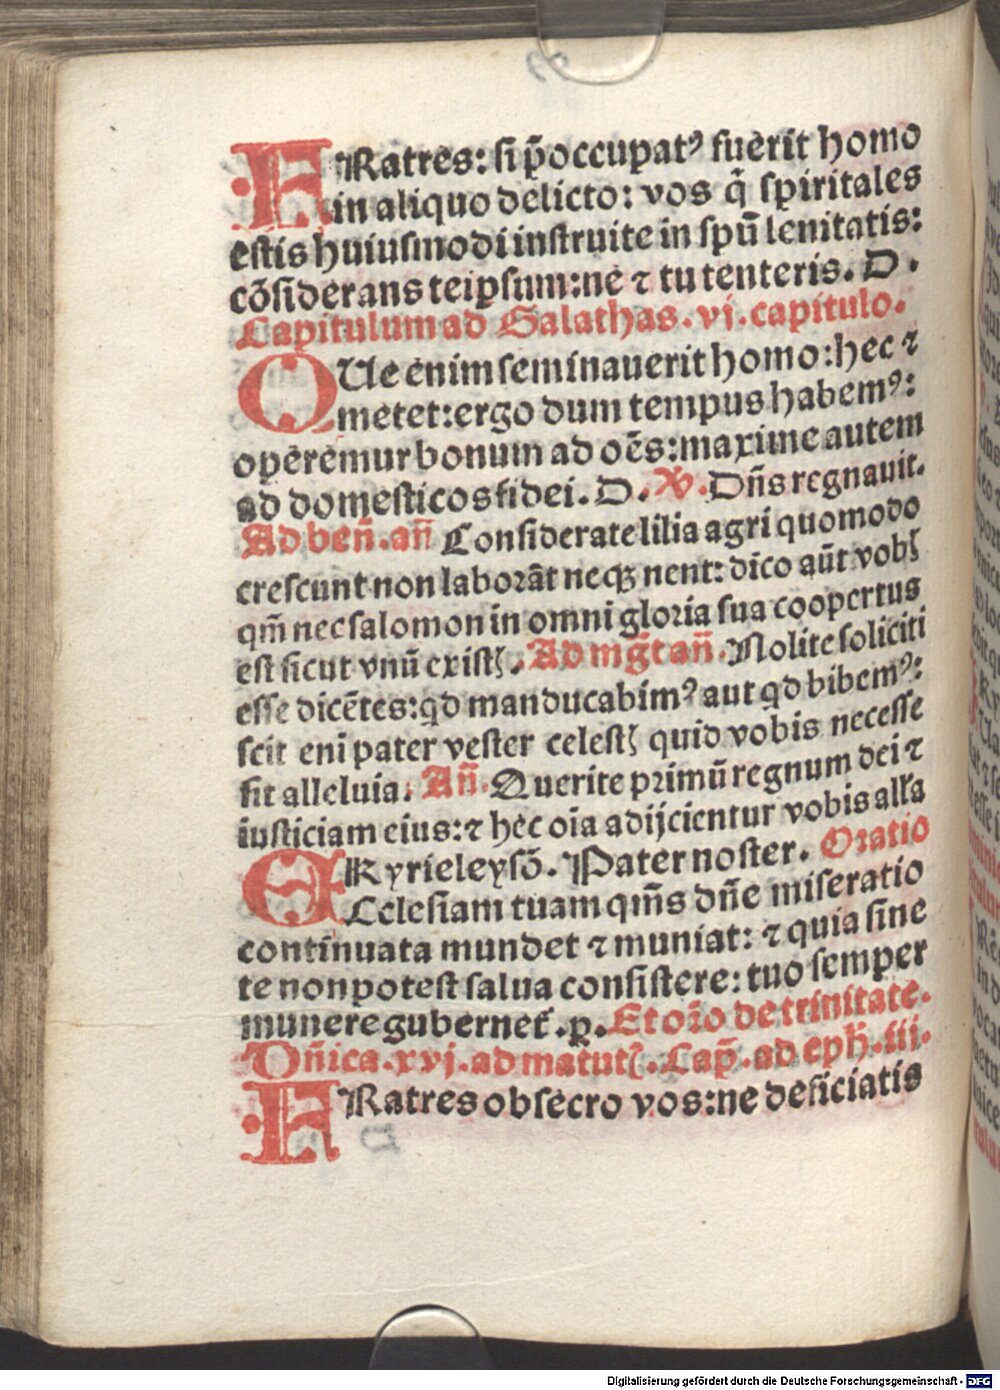 FRatres: si p̄occupatꝰ fuerit homo
in aliquo delicto: vos q̄ spiritales
estis huiusmodi instruite in spū lenitatis:
cōsiderans teipsum: ne ⁊ tu tenteris. D.
Capitulum ad Galathas. vj. capitulo.
QUe enim seminauerit homo: hec ⁊
metet: ergo dum tempus habemꝰ:
operemur bonum ad oēs: maxime autem
ad domesticos fidei. D. ℣. Dn̄s regnauit.
Ad ben̄. an̄ Considerate lilia agri quomodo
crescunt non laborāt neqꝫ nent: dico aūt vobꝭ
qm̄ nec salomon in omni gloria sua coopertus
est sicut vnū existꝭ. Ad mḡt an̄. Nolite soliciti
esse dicētes: qd manducabimꝰ aut qd bibemꝰ:
scit eni pater vester celestꝭ quid vobis necesse
sit alleluia. An̄. Querite primū regnum dei ⁊
iusticiam eius: ⁊ hec oīa adijcientur vobis all'a
Kyrieleysō. Pater noster. Oratio
ECclesiam tuam qm̄s dn̄e miseratio
continuata mundet ⁊ muniat: ⁊ quia sine
te non potest salua consistere: tuo semper
munere gubernet̄. p. Et or̄o de trinitate.
Dn̄ica. xvj. ad matutꝭ. Cap̄. ad eph̄. iij.
FRatres obsecro vos: ne deficiatis
Digitalisierung gefördert durch die Deutsche Forschungsgemeinschaft - DFG